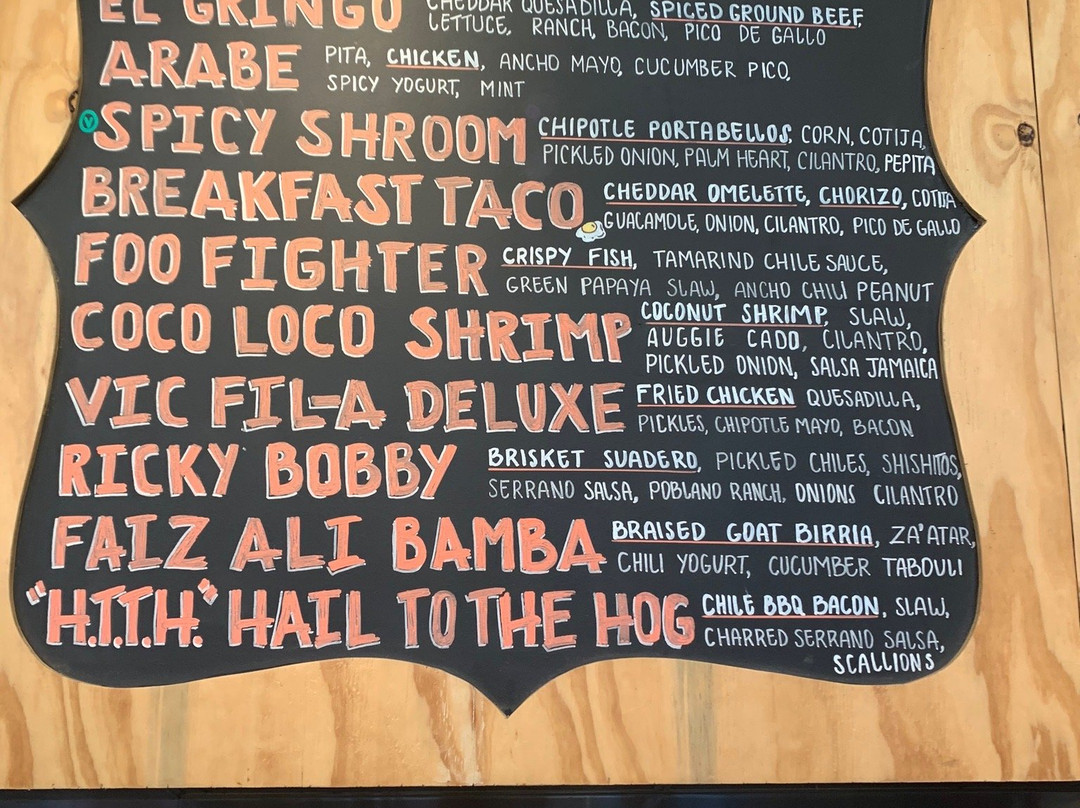 EL GRINGO
CHEDDAR QUESADILLA, SPICED GROUND BEEF,
LETTUCE, RANCH, BACON, PICO DE GALLO
ARABE
PITA, CHICKEN, ANCHO MAYO, CUCUMBER PICO,
SPICY YOGURT, MINT
V
SPICY SHROOM
CHIPOTLE PORTABELLOS, CORN, COTIJA,
PICKLED ONION, PALM HEART, CILANTRO, PEPITA
BREAKFAST TACO
CHEDDAR OMELETTE, CHORIZO, COTIJA,
GUACAMOLE, ONION, CILANTRO, PICO DE GALLO
FOO FIGHTER
CRISPY FISH, TAMARIND CHILE SAUCE,
GREEN PAPAYA SLAW, ANCHO CHILI PEANUT
COCO LOCO SHRIMP
COCONUT SHRIMP, SLAW,
AUGGIE CADO, CILANTRO,
PICKLED ONION, SALSA JAMAICA
VIC FIL-A DELUXE
FRIED CHICKEN QUESADILLA,
PICKLES, CHIPOTLE MAYO, BACON
RICKY BOBBY
BRISKET SUADERO, PICKLED CHILES, SHISHITOS,
SERRANO SALSA, POBLANO RANCH, ONIONS CILANTRO
FAIZ ALI BAMBA
BRAISED GOAT BIRRIA, ZA'ATAR,
CHILI YOGURT, CUCUMBER TABOULI
"H.T.T.H." HAIL TO THE HOG
CHILE BBQ BACON, SLAW,
CHARRED SERRANO SALSA,
SCALLIONS